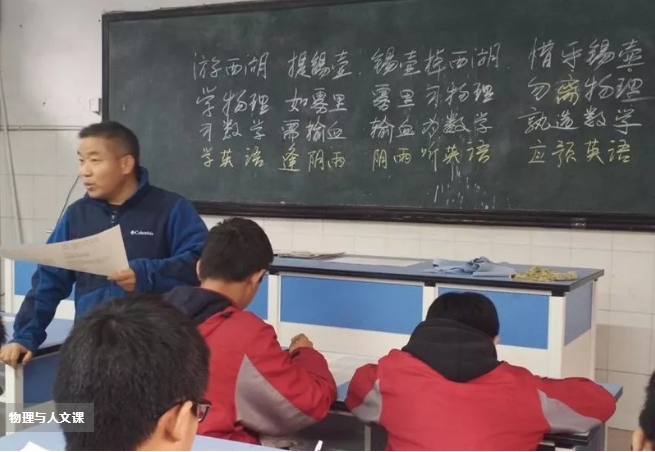 游西湖 提锡壶 锡壶掉西湖 惜乎锡壶
学物理 如雾里 雾里习物理 勿离物理
习数学 需输血 输血为数学 熟选数学
学英语 逢阴雨 阴雨听英语 应预英语
Columbia
物理与人文课